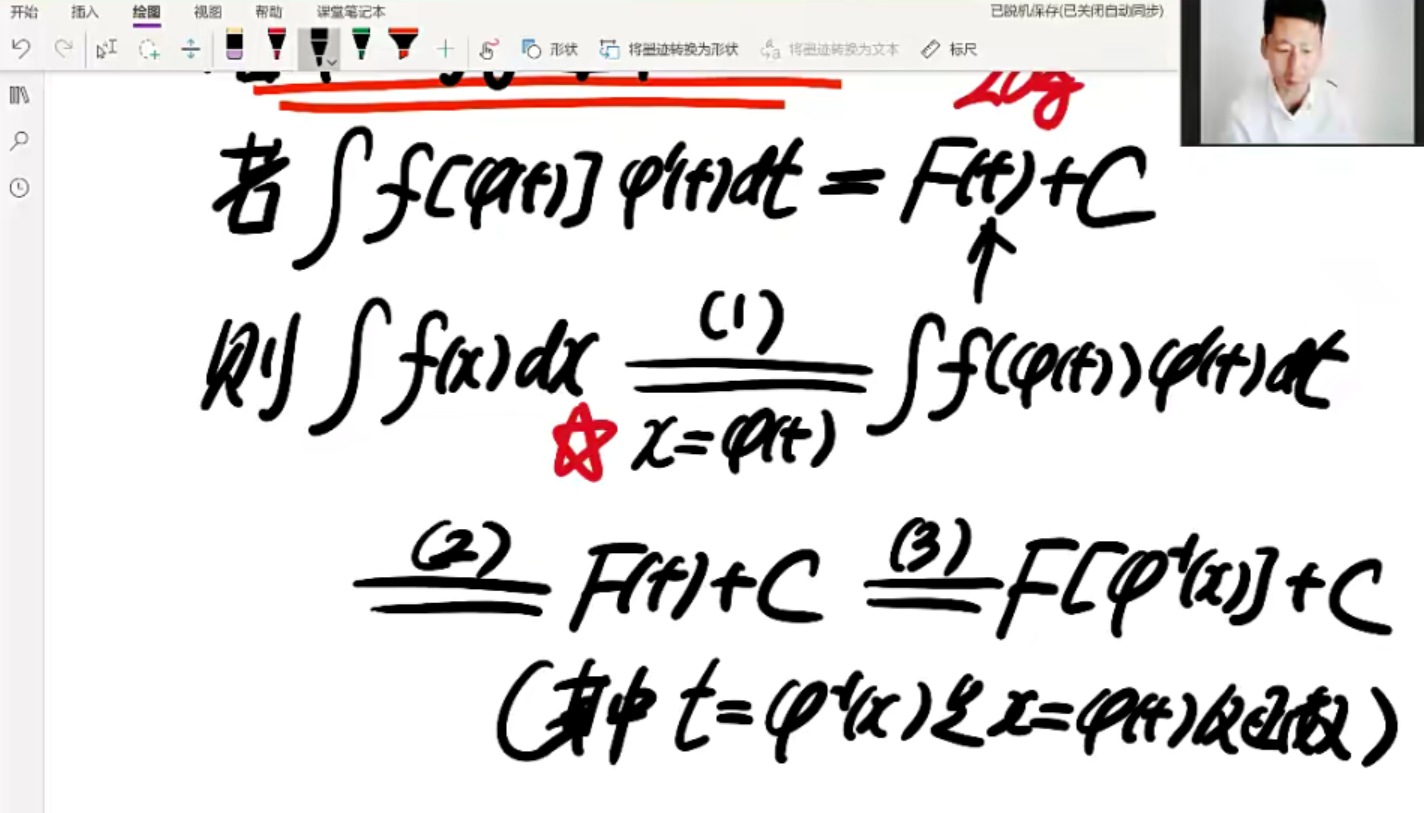 开始 插入 绘图 视图 帮助 课堂笔记本 已脱机保存(已关闭自动同步)
形状 将墨迹转换为形状 将墨迹转换为文本 标尺
若 ∫ f[φ(t)] φ'(t)dt = F(t)+C
↑
则 ∫ f(x)dx (1) x=φ(t) ∫ f(φ(t))φ'(t)dt
(2) F(t)+C (3) F[φ⁻¹(x)]+C
(其中 t=φ⁻¹(x)是 x=φ(t)反函数)